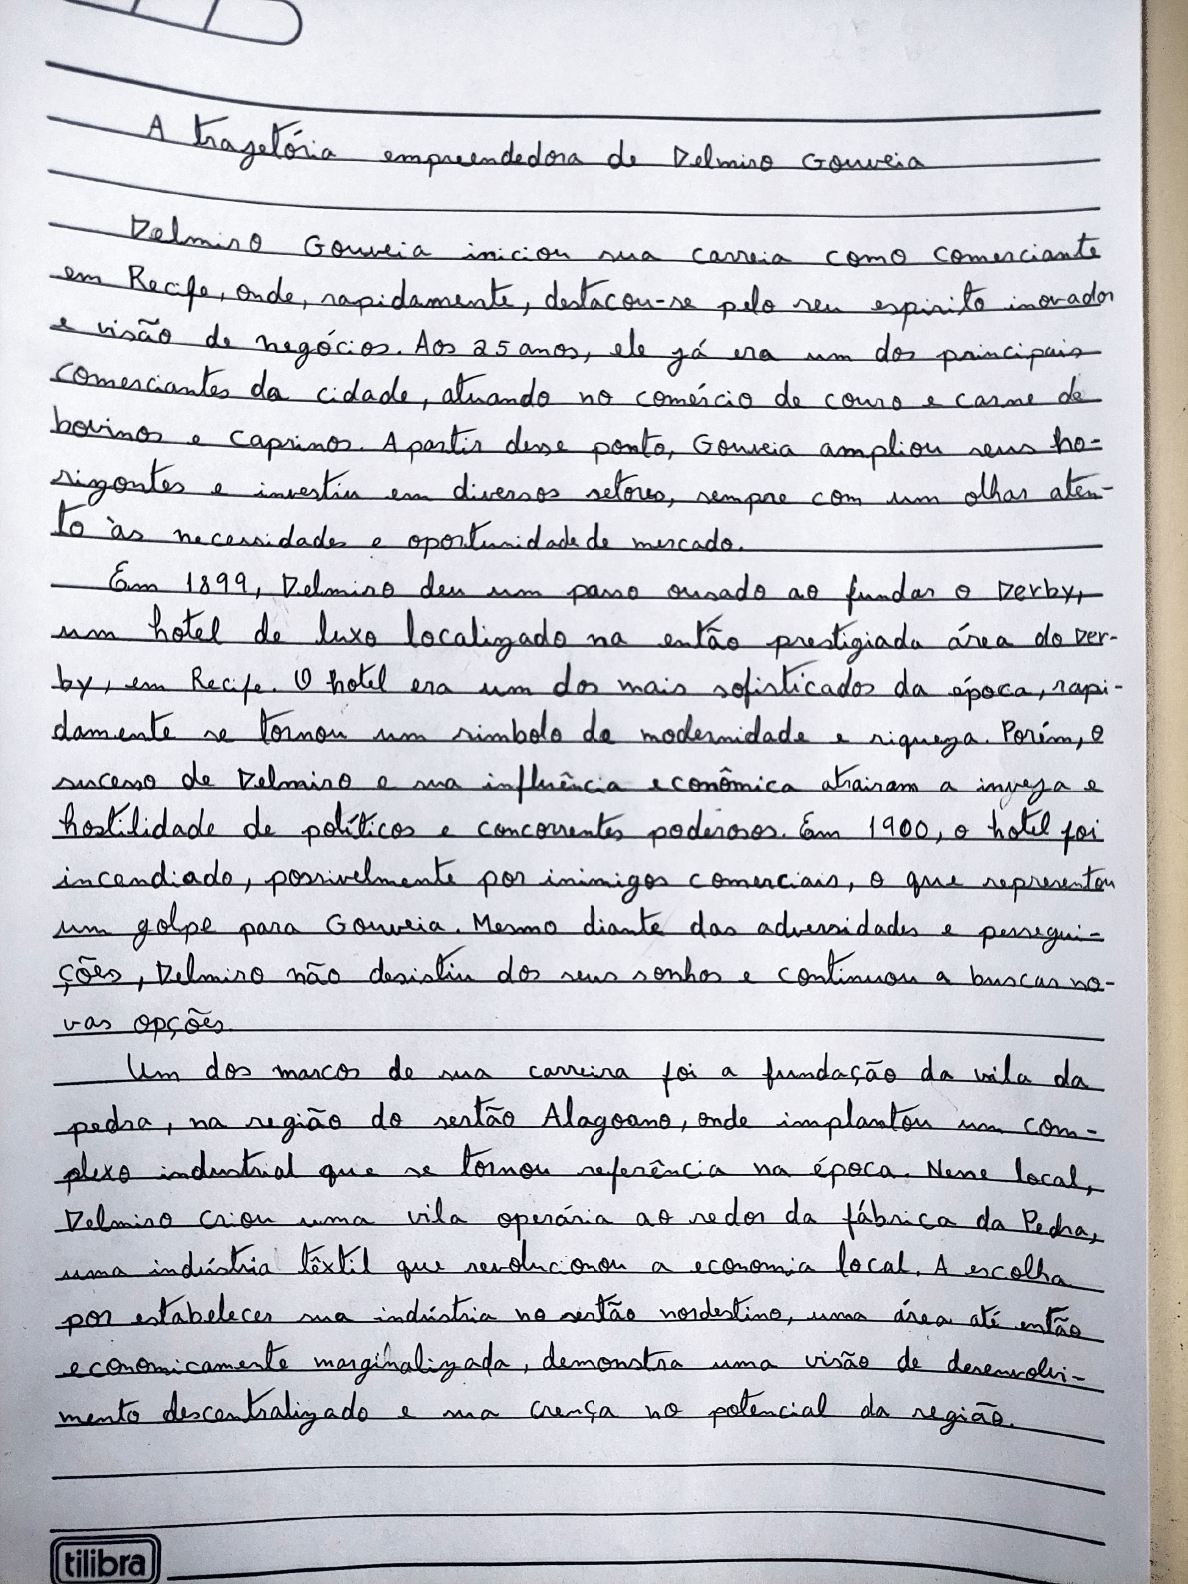 A tragetória empreendedora de Delmiro Gouveia
Delmiro Gouveia iniciou sua carreia como comerciante
em Recife, onde, rapidamente, destacou-se pelo seu espirito inovador
e visão de negócios. Aos 25 anos, ele já era um dos principais
comerciantes da cidade, atuando no comércio de couro e carne de
bovinos e caprinos. A partir desse ponto, Gouveia ampliou seus ho-
rizontes e investiu em diversos setores, sempre com um olhar aten-
to às necessidades e oportunidade de mercado.
Em 1899, Delmiro deu um passo ousado ao fundar o Derby,
um hotel de luxo localizado na então prestigiada área do Der-
by, em Recife. O hotel era um dos mais sofisticados da época, rapi-
damente se tornou um simbolo de modernidade e riqueza. Porém, o
sucesso de Delmiro e sua influência econômica atrairam a inveja e
hostilidade de políticos e concorrentes poderosos. Em 1900, o hotel foi
incendiado, possivelmente por inimigos comerciais, o que representou
um golpe para Gouveia. Mesmo diante das adversidades e persegui-
ções, Delmiro não desistiu dos seus sonhos e continuou a buscar no-
vas opções.
Um dos marcos de sua carreira foi a fundação da vila da
pedra, na região do sertão Alagoano, onde implantou um com-
plexo industrial que se tornou referência na época. Nesse local,
Delmiro criou uma vila operária ao redor da fábrica da Pedra,
uma indústria têxtil que revolucionou a economia local. A escolha
por estabelecer sua indústria no sertão nordestino, uma área até então
economicamente marginalizada, demonstra uma visão de desenvolvi-
mento descentralizado e sua crença no potencial da região.
tilibra